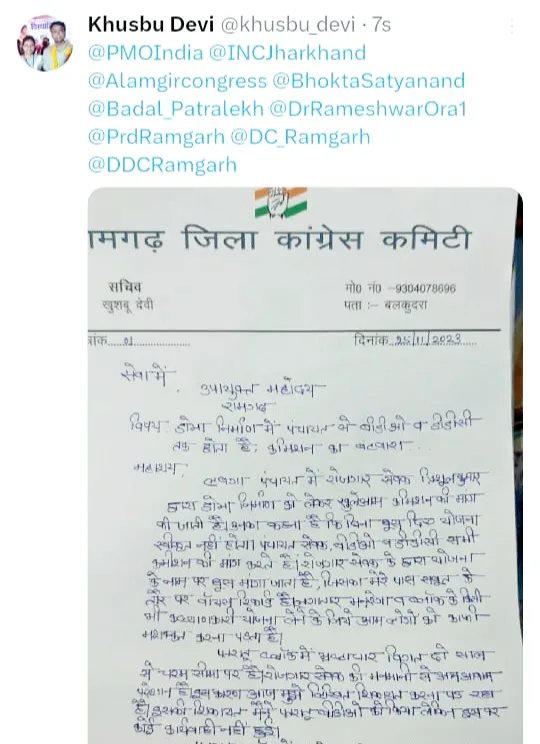 Khusbu Devi @khusbu_devi · 7s
@PMOIndia @INCJharkhand
@Alamgircongress @BhoktaSatyanand
@Badal_Patralekh @DrRameshwarOra1
@PrdRamgarh @DC_Ramgarh
@DDCRamgarh
ामगढ़ जिला कांग्रेस कमिटी
सचिव
खुशबू देवी
मो० नं० -9304078696
पता :- बलकुदरा
ांक....01....................
दिनांक..25/11/2023.....
सेवा में
उपायुक्त महोदय
रामगढ़
विषय: डोभा निर्माण में पंचायत से बीडीओ व डीडीसी
तक होता है, कमिशन का बटवारा...
महाशय
पंचायत में रोजगार सेवक
द्वारा डोभा निर्माण को लेकर खुलेआम कमिशन की मांग
की जाती है। उनका कहना है कि बिना घूस दिए योजना
स्वीकृत नहीं होगा। पंचायत सेवक, बीडीओ व डीडीसी सभी
कमीशन की मांग करते हैं। रोजगार सेवक के द्वारा योजना
के नाम पर घूस मांगा जाता है, जिसका मेरे पास सबूत के
तौर पर वॉयस रिकार्ड है। मनरेगा व ब्लॉक के किसी
भी कल्याणकारी योजना लेने के लिये आम लोगों को काफी
मशक्कत करना पड़ता है।
पतरातू ब्लॉक में भ्रष्टाचार विगत दो साल
से चरम सीमा पर है। रोजगार सेवक की मनमानी से आम आवाम
परेशान है। इस कारण आज मुझे लिखित शिकायत करना पड़ रहा
है। इसकी शिकायत मैंने पतरातू बीडीओ को किया लेकिन इस पर
कोई कार्यवाही नहीं हुई।